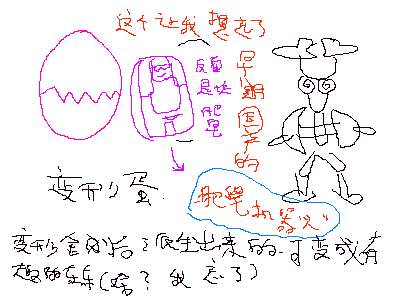 这个让我想
反面
是块
肥皂
早期国产的
变形蛋
肥皂机器人
变形金刚后 生出来的 可变成有
(啥？我忘了)